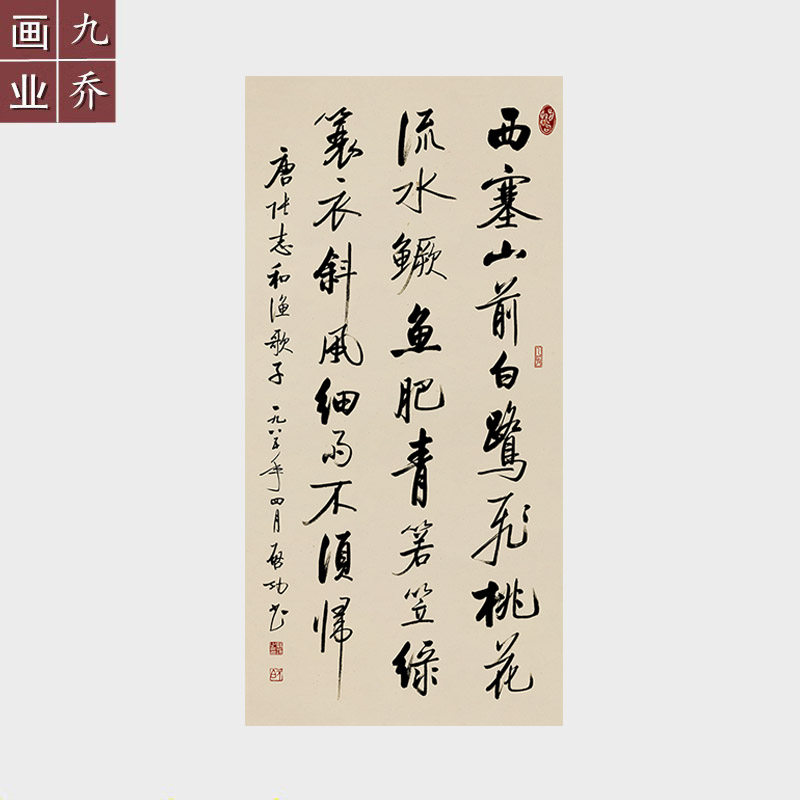 九乔
画业
西塞山前白鷺飛桃花
流水鱖魚肥青箬笠綠
簑衣斜風細雨不須歸
唐張志和漁歌子 一九八五年四月 啟功書